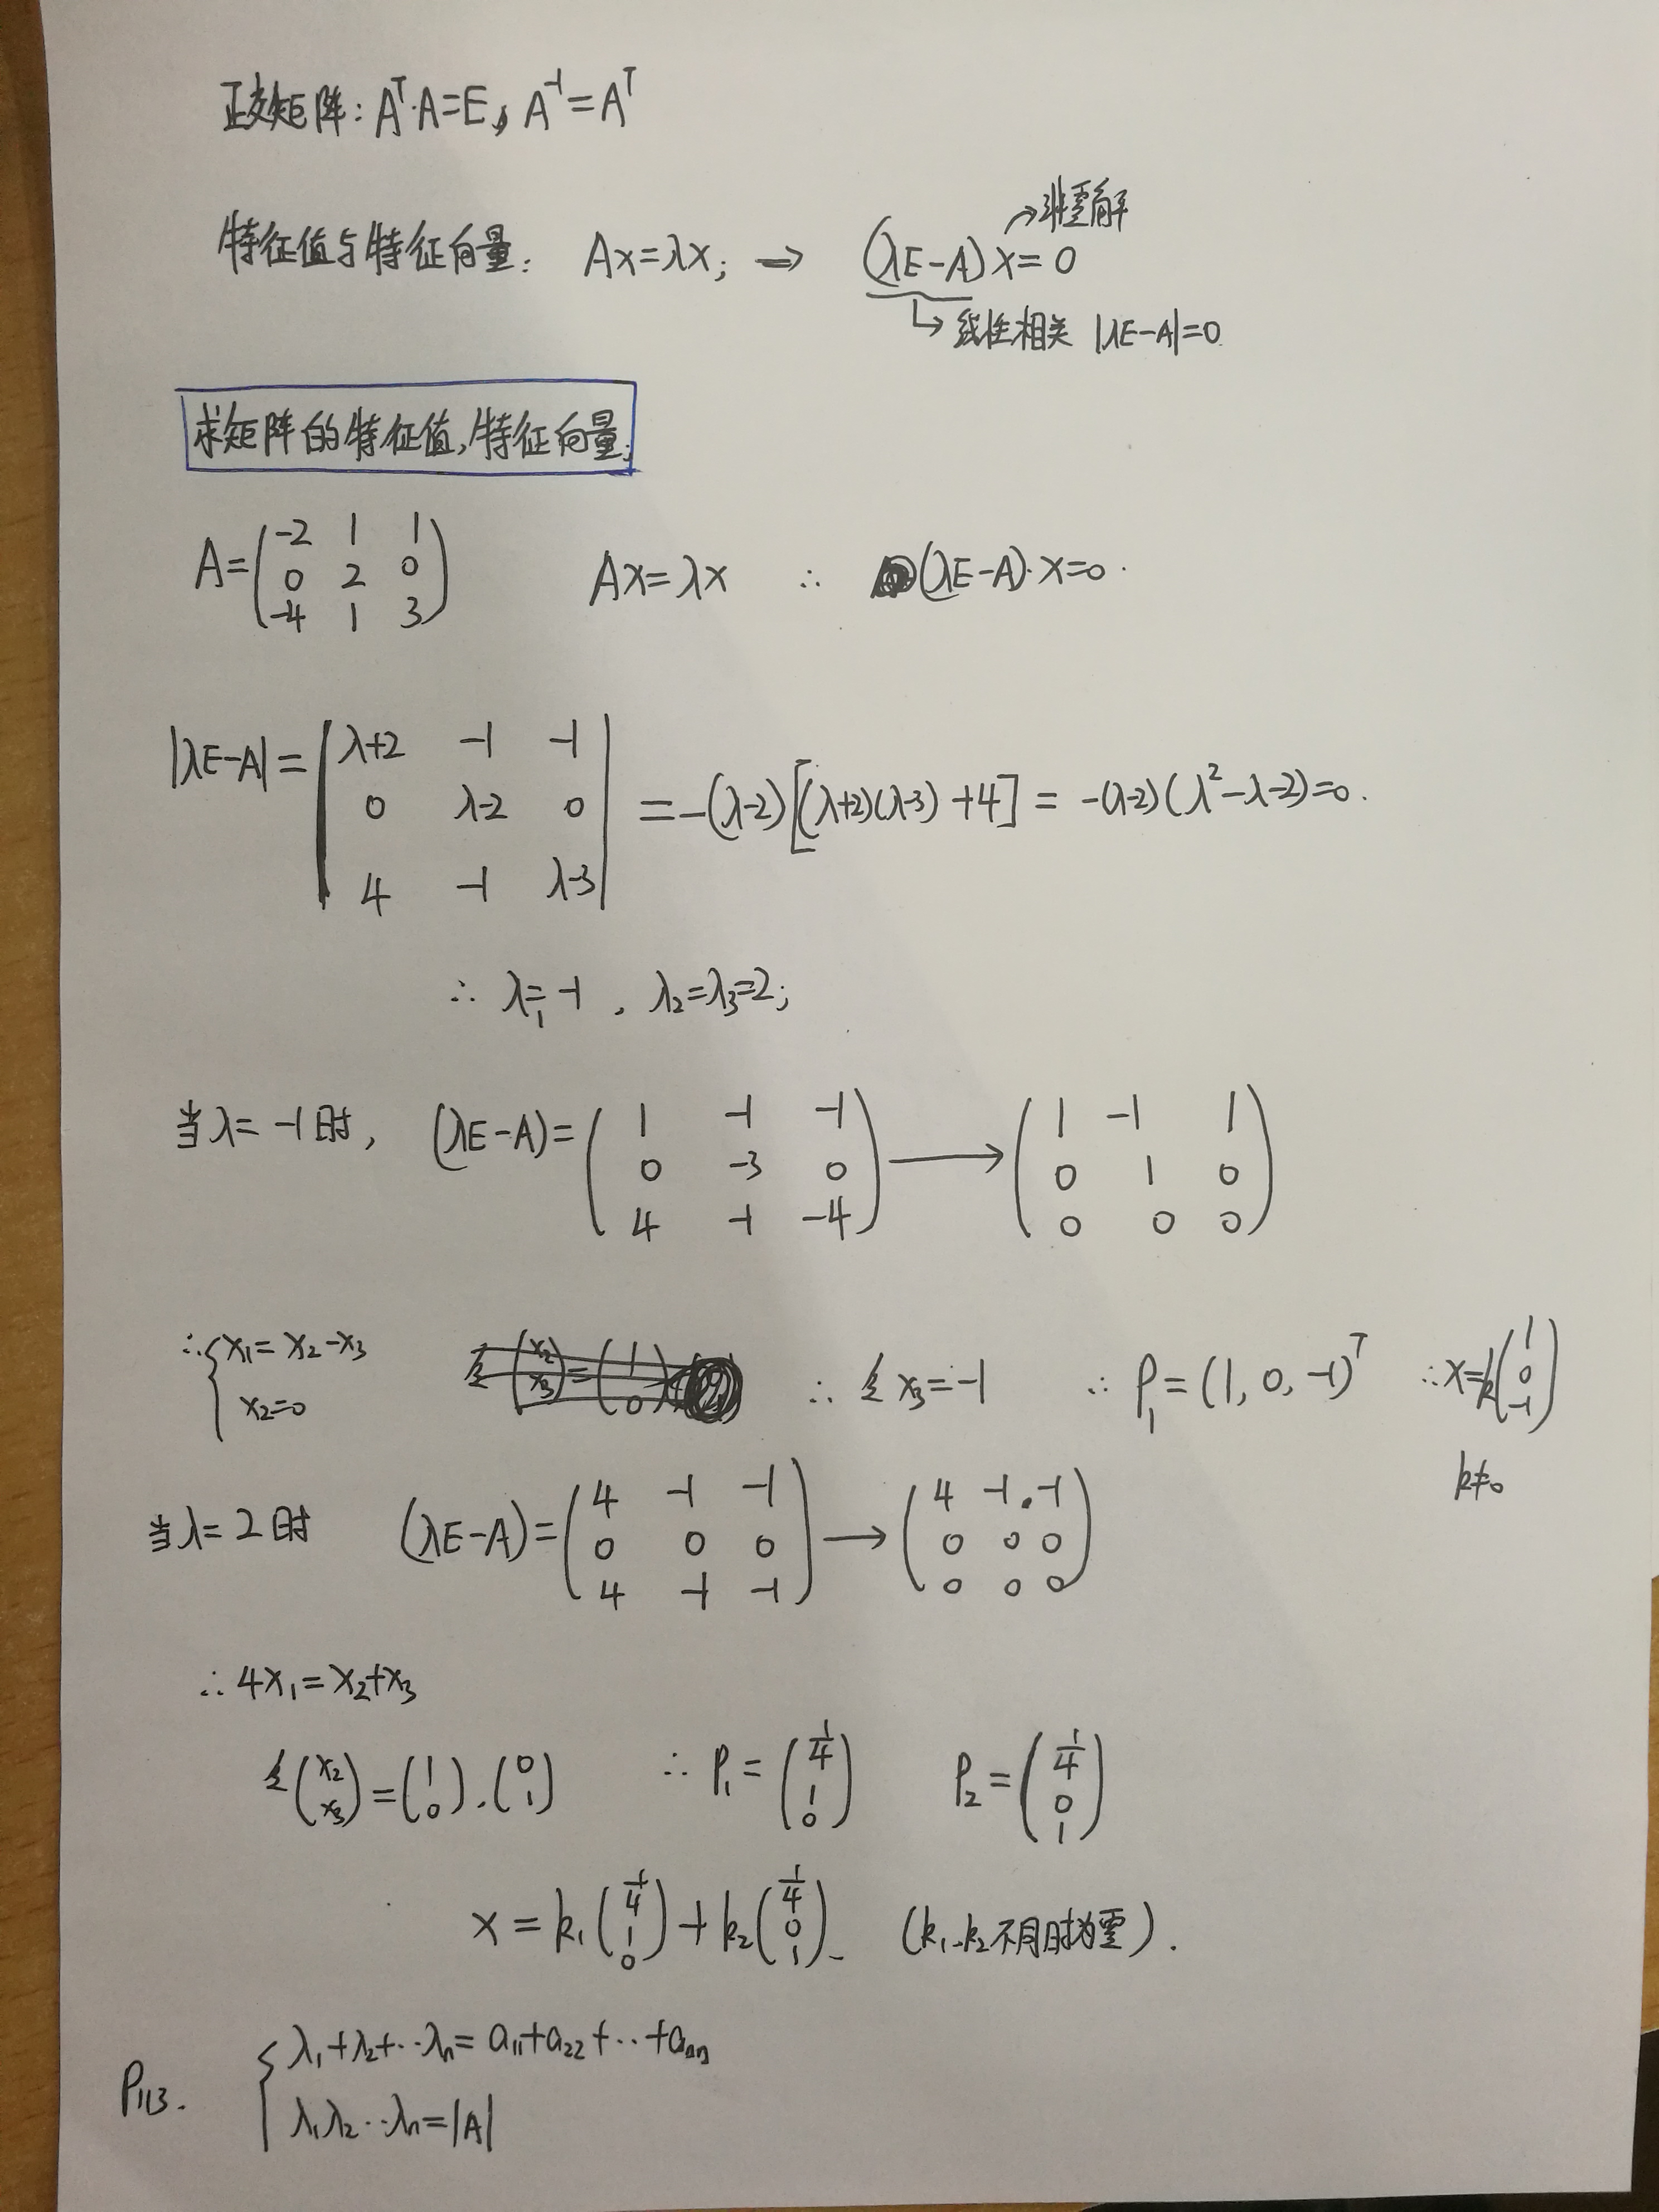 正交矩阵: Aᵀ·A=E, A⁻¹=Aᵀ
→非零解
特征值与特征向量: Ax=λx; → (λE-A)x=0
↳线性相关 |λE-A|=0
求矩阵的特征值,特征向量;
A=(-2 1 1
0 2 0
-4 1 3) Ax=λx ∴ (λE-A)·x=0.
|λE-A|=|λ+2 -1 -1
0 λ-2 0
4 -1 λ-3| =-(λ-2)[(λ+2)(λ-3)+4]=-(λ-2)(λ²-λ-2)=0.
∴ λ₁=-1, λ₂=λ₃=2;
当λ=-1时, (λE-A)=(1 -1 -1
0 -3 0
4 -1 -4) → (1 -1 1
0 1 0
0 0 0)
∴{x₁=x₂-x₃
x₂=0
令(x₂
x₃)=(1
0)
∴ 令x₃=-1 ∴ P₁=(1,0,-1)ᵀ ∴x=k(1
0
-1)
k≠0
当λ=2时 (λE-A)=(4 -1 -1
0 0 0
4 -1 -1) → (4 -1 -1
0 0 0
0 0 0)
∴4x₁=x₂+x₃
令(x₂
x₃)=(1
0).(0
1) ∴ P₁=(1/4
1
0) P₂=(1/4
0
1)
x=k₁(1/4
1
0)+k₂(1/4
0
1) (k₁.k₂不同时为零).
P113. {λ₁+λ₂+··λₙ=a₁₁+a₂₂+··+aₙₙ
λ₁λ₂··λₙ=|A|